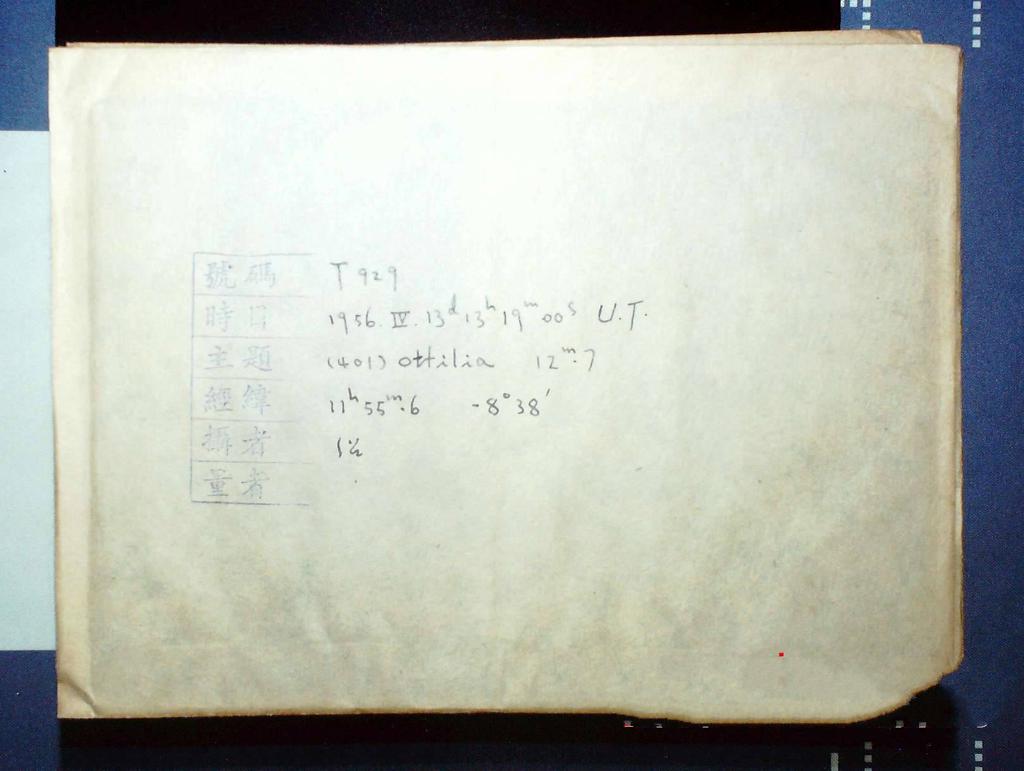 號碼 T 929
時日 1956. IV. 13ᵈ 13ʰ 19ᵐ 00ˢ U.T.
主題 (401) Ottilia 12ᵐ.7
經緯 11ʰ 55ᵐ.6 -8°38′
攝者
量者